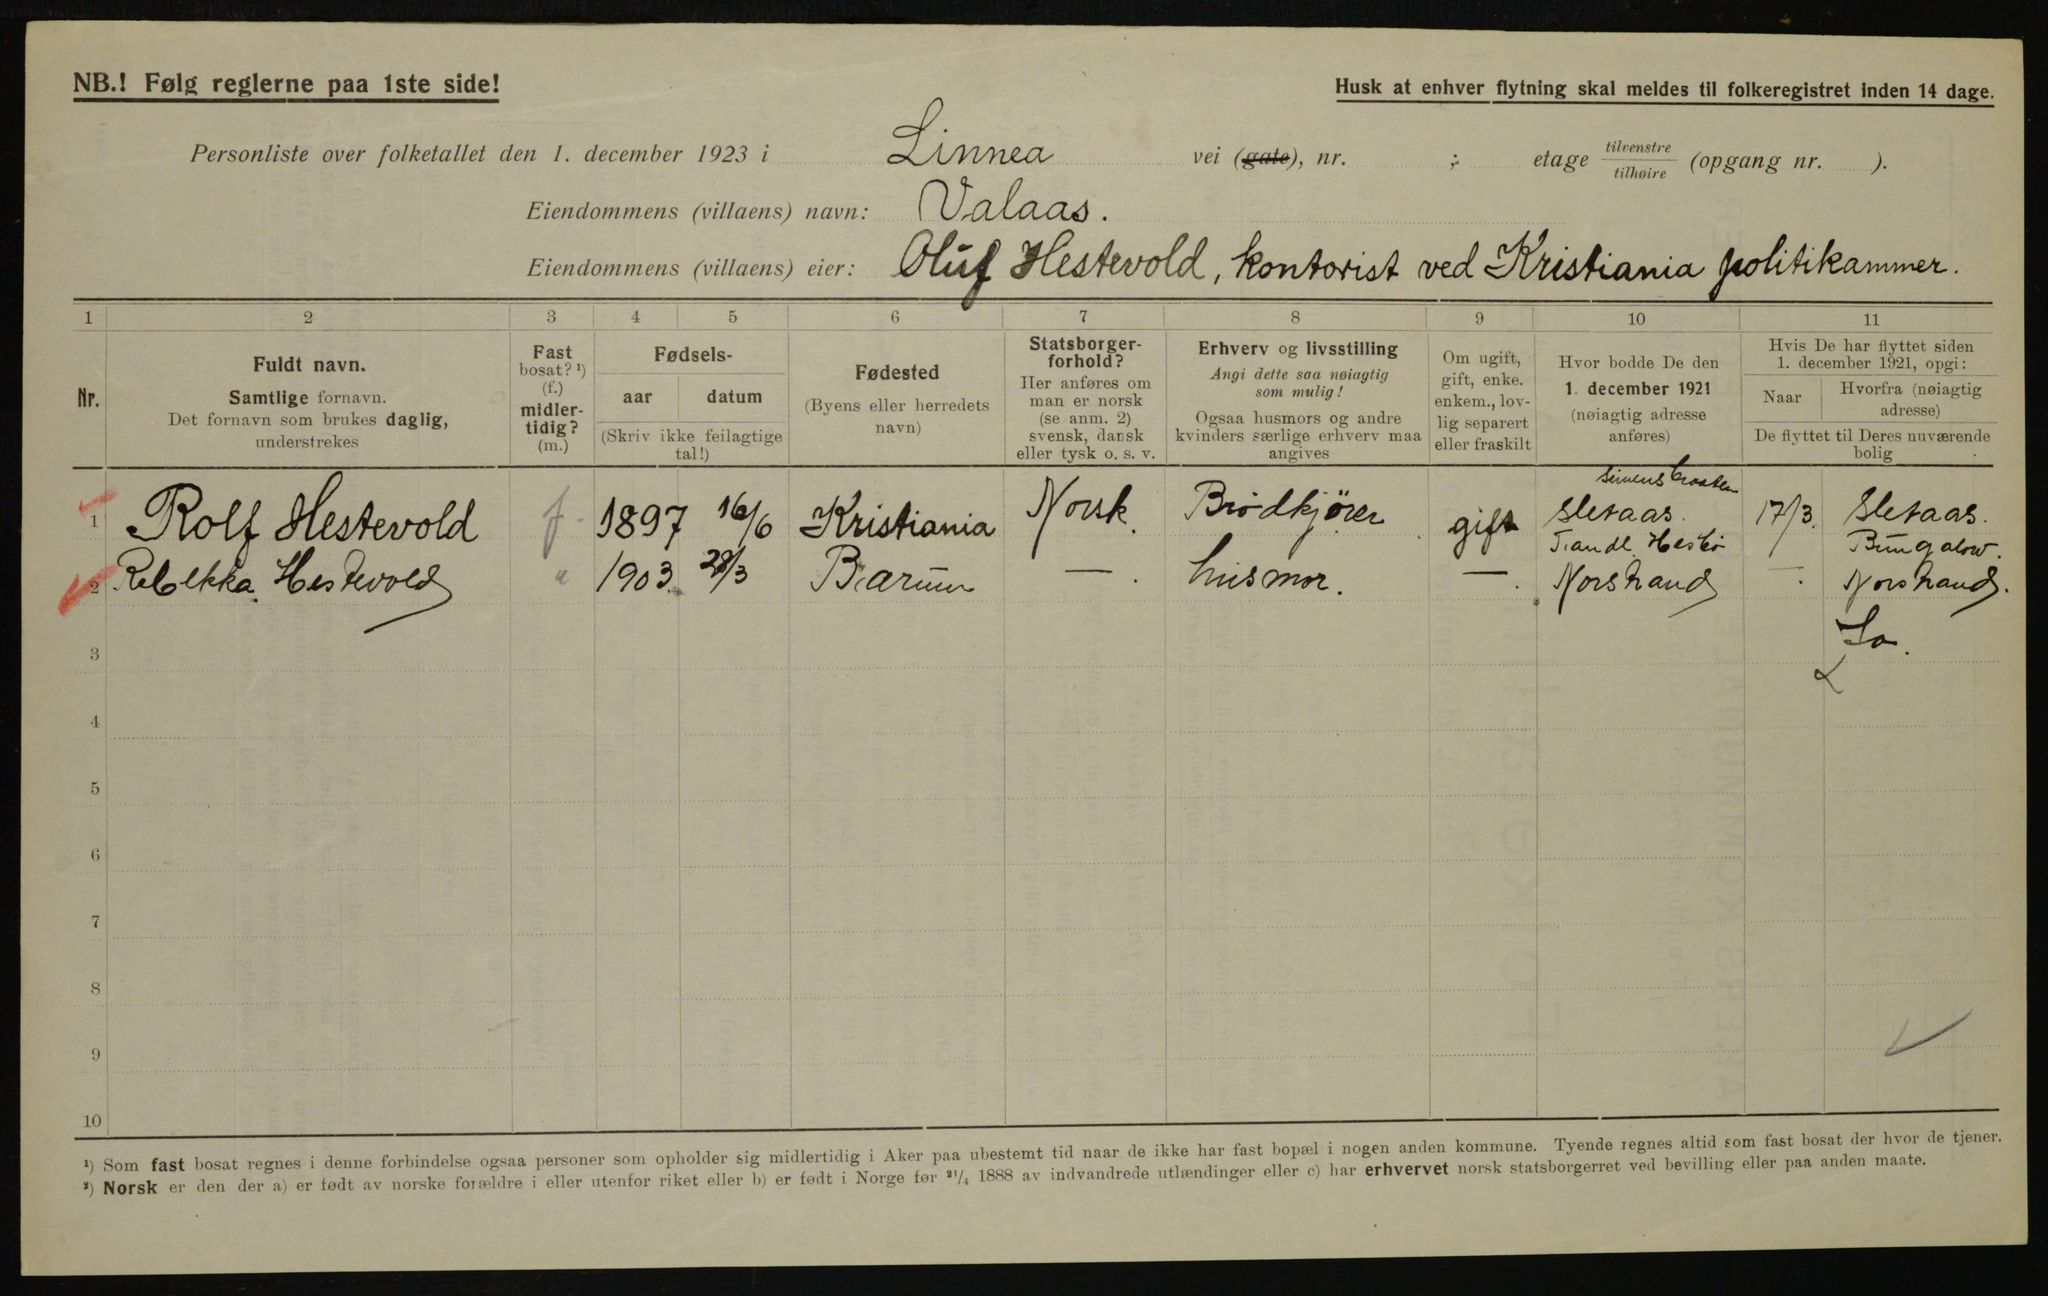 NB.! Følg reglerne paa 1ste side!
Husk at enhver flytning skal meldes til folkeregistret inden 14 dage.
Personliste over folketallet den 1. december 1923 i Linnea vei (gate), nr. ; etage tilvenstre tilhøire (opgang nr. ).
Eiendommens (villaens) navn: Valaas.
Eiendommens (villaens) eier: Oluf Hestevold, kontorist ved Kristiania politikammer.
1 2 3 4 5 6 7 8 9 10 11
Nr.
Fuldt navn.
Samtlige fornavn.
Det fornavn som brukes daglig,
understrekes
Fast
bosat? ¹)
(f.)
midler-
tidig?
(m.)
Fødsels-
aar datum
(Skriv ikke feilagtige
tal!)
Fødested
(Byens eller herredets
navn)
Statsborger-
forhold?
Her anføres om
man er norsk
(se anm. 2)
svensk, dansk
eller tysk o. s. v.
Erhverv og livsstilling
Angi dette saa nøiagtig
som mulig!
Ogsaa husmors og andre
kvinders særlige erhverv maa
angives
Om ugift,
gift, enke.
enkem., lov-
lig separert
eller fraskilt
Hvor bodde De den
1. december 1921
(nøiagtig adresse
anføres)
Hvis De har flyttet siden
1. december 1921, opgi:
Naar
Hvorfra (nøiagtig
adresse)
De flyttet til Deres nuværende
bolig
1 Rolf Hestevold f. 1897 16/6 Kristiania Norsk. Brødkjører gift Sletaas. 17/3. Sletaas.
Bungalow.
2 Rebekka Hestevold " 1903 28/3 Bærum — . husmor. — . Norstrand — . Norstrand.
3
4
5
6
7
8
9
10
¹) Som fast bosat regnes i denne forbindelse ogsaa personer som opholder sig midlertidig i Aker paa ubestemt tid naar de ikke har fast bopæl i nogen anden kommune. Tyende regnes altid som fast bosat der hvor de tjener.
²) Norsk er den der a) er født av norske forældre i eller utenfor riket eller b) er født i Norge før ²¹/₄ 1888 av indvandrede utlændinger eller c) har erhvervet norsk statsborgerret ved bevilling eller paa anden maate.